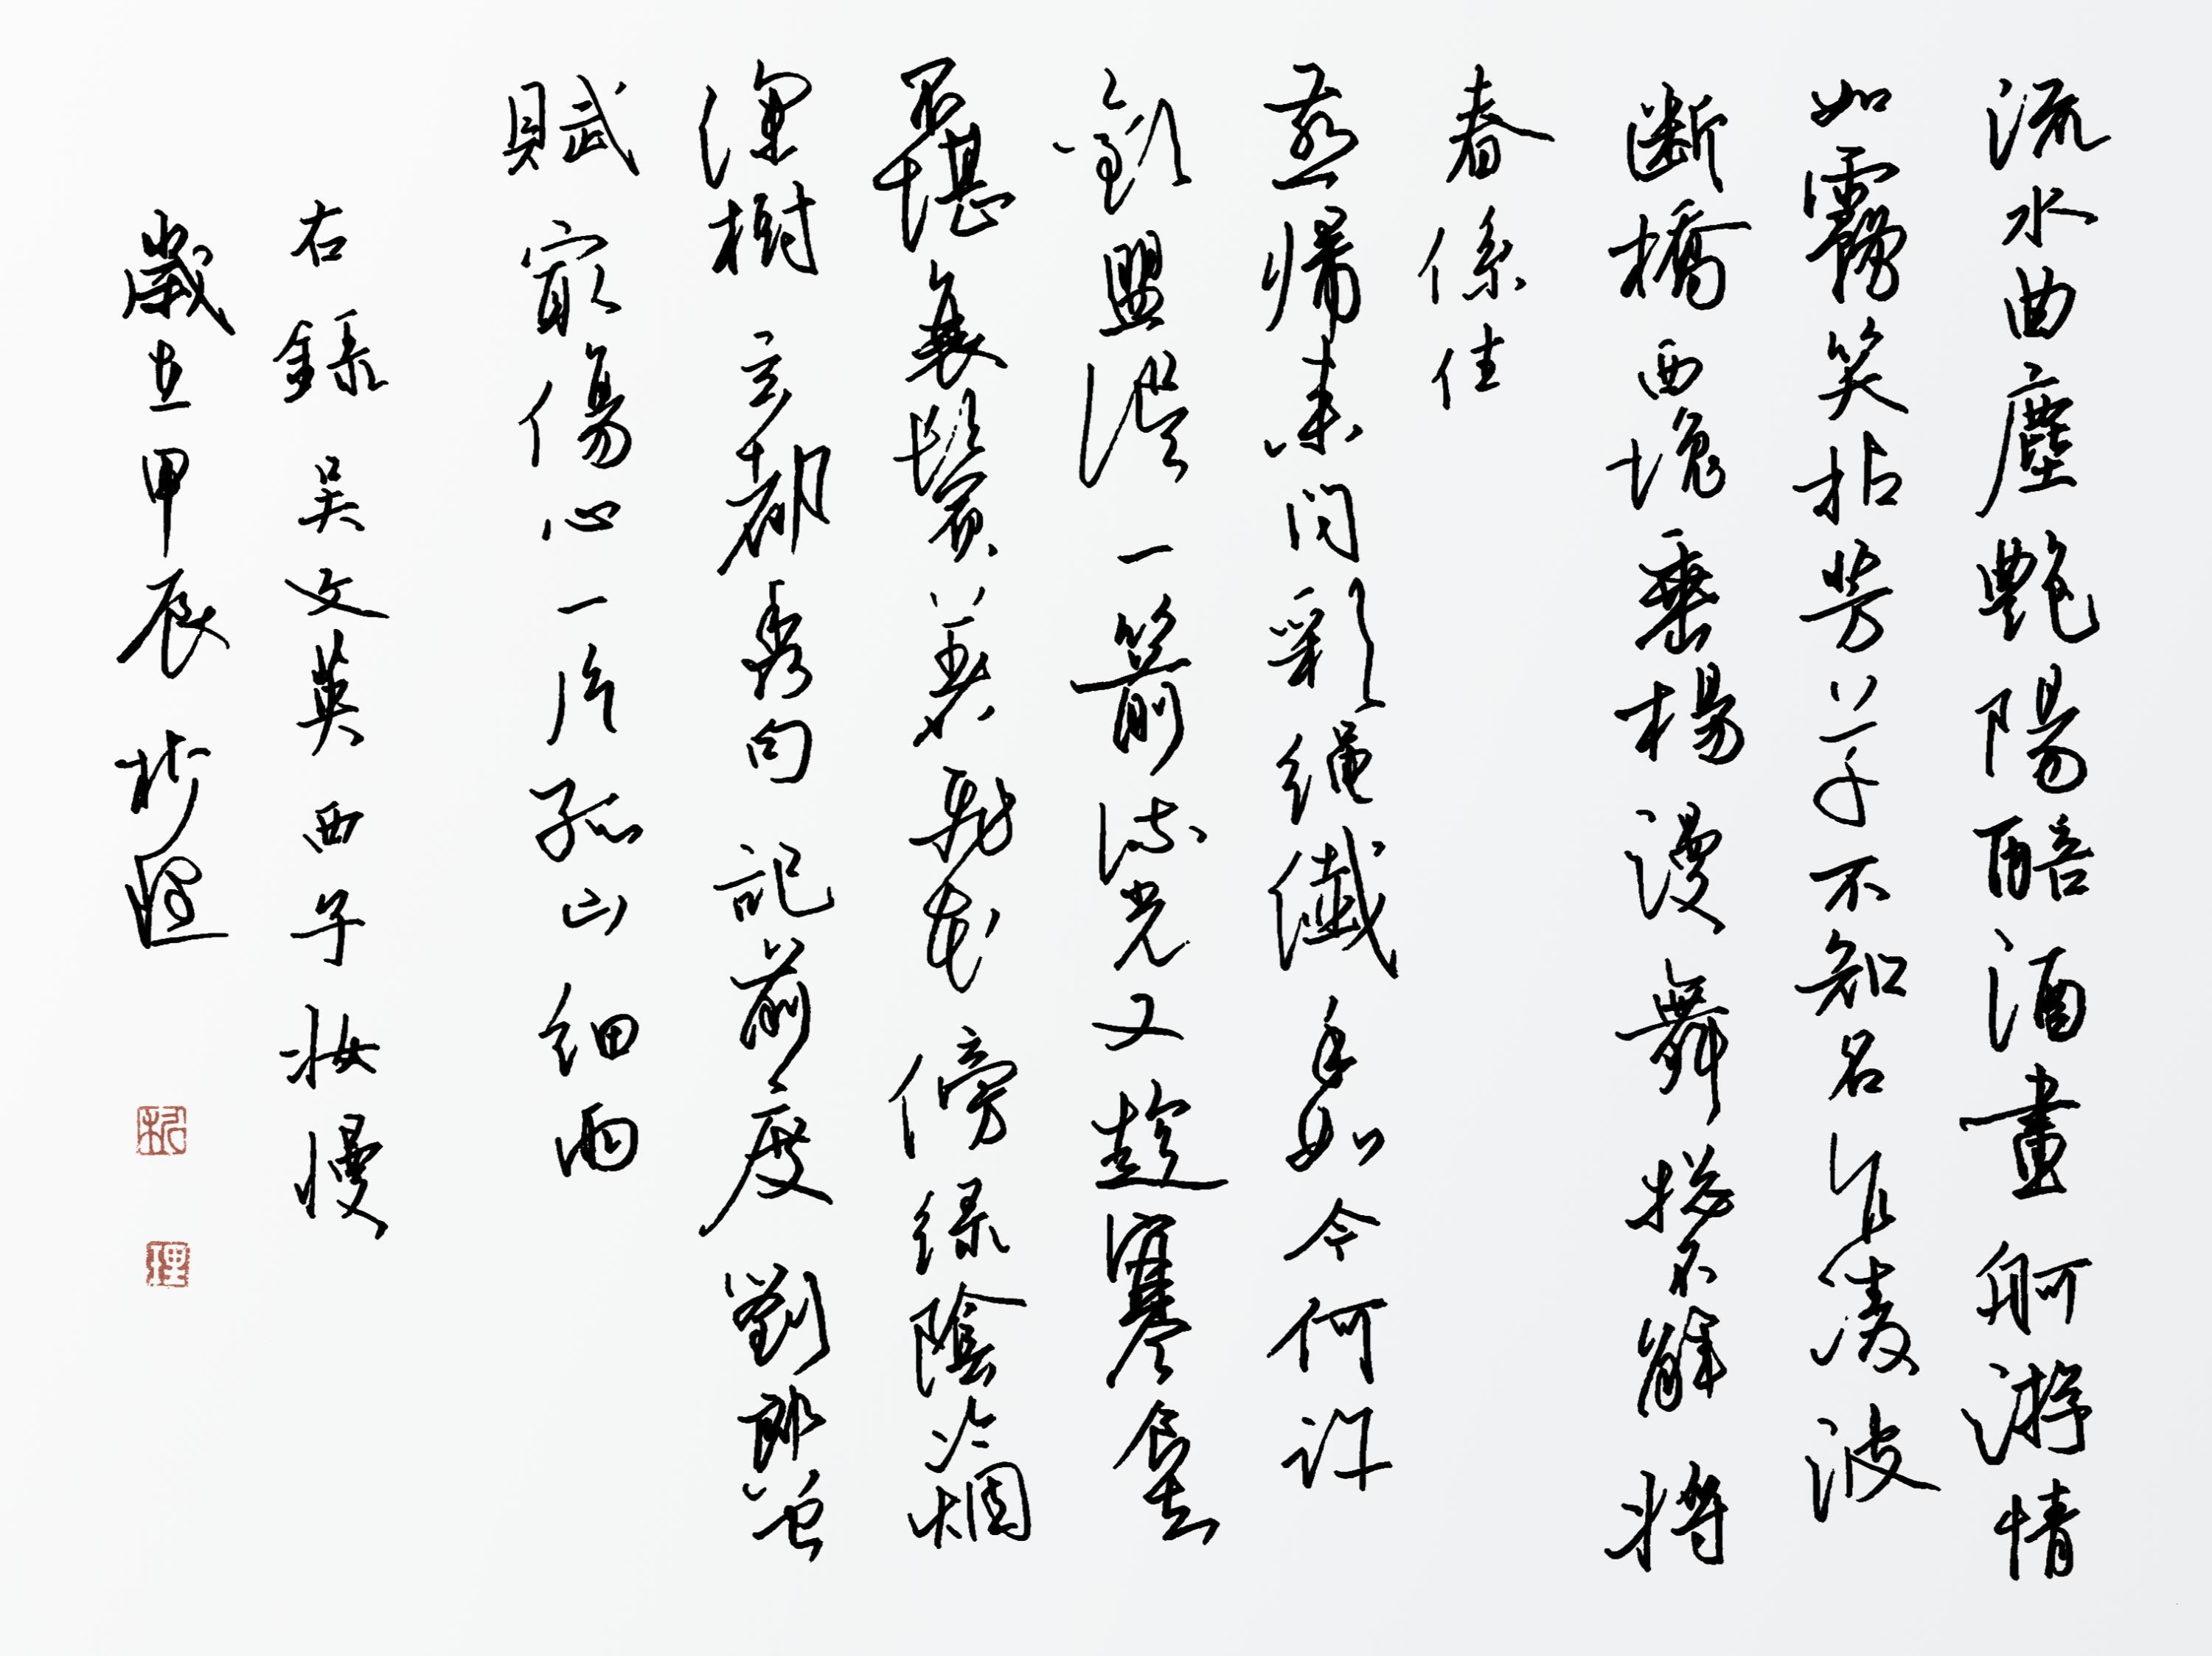 流水曲塵艷陽醅酒畫舸游情
如霧笑拈芳草不知名乍凌波
断橋西堍垂楊漫舞總不解將
春係住
燕帰來問彩繩纖手如今何許
歡盟誤一箭流光又趁寒食去
不堪衰鬢著飛花傍綠陰冷烟
深樹玄都秀句記前度劉郎曾
賦最傷心一片孤山細雨
右錄吳文英西子妆慢
歲在甲辰
理